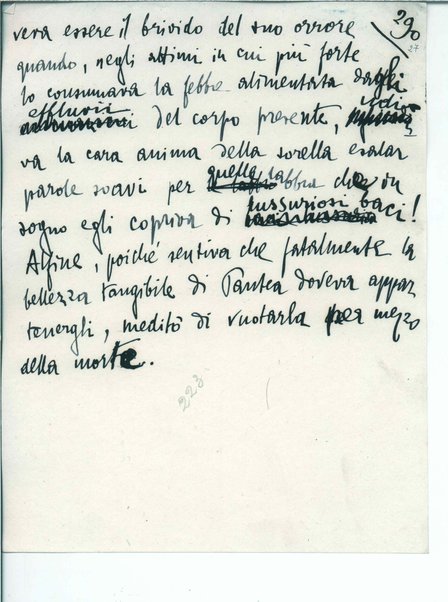 290
27
vera essere il brivido del suo orrore
quando, negli attimi in cui più forte
lo consumava la febbre alimentata dagli
effluvii del corpo presente, udi
va la cara anima della sorella esalar
parole soavi per quelle labbra che in
sogno egli copriva di lussuriosi baci!
Alfine, poiché sentiva che fatalmente la
bellezza tangibile di Pantea doveva appar
tenergli, meditò di vuotarla per mezzo
della morte.
223